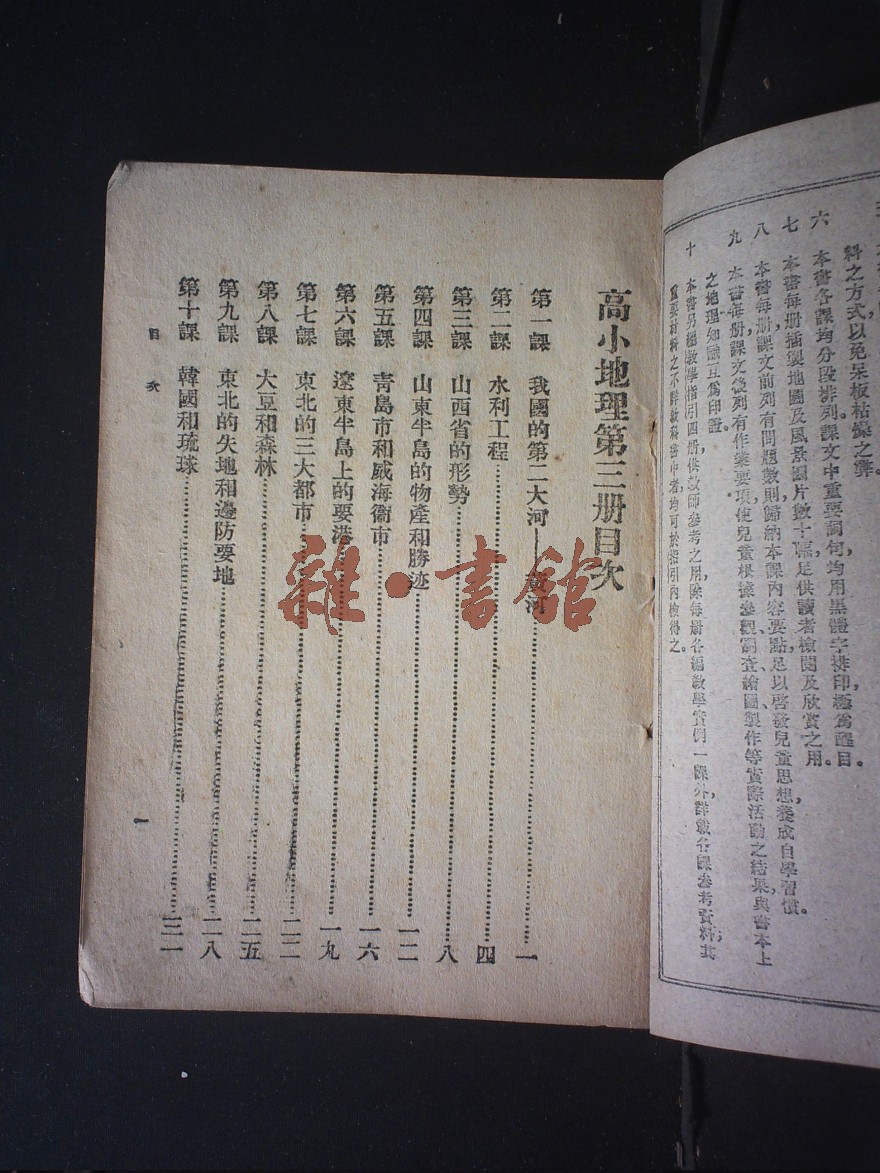 料之方式以免呆板枯燥之弊。
六 本書各課均分段排列課文中重要詞句,均用黑體字排印,極爲醒目。
七 本書每册插製地圖及風景圖片數十幅,足供讀者檢閱及欣賞之用。
八 本書每册課文前列有問題數則歸納本課內容要點足以啓發兒童思想,養成自學習慣。
九 本書每册課文後列有作業要項使兒童根據參觀、調查、繪圖、製作等實際活動之結果與書本上
之地理知識互爲印證。
十 本書另編教學指引四册,供教師參考之用,除每册各編教學實例一課外,詳載各課參考資料;其
重要材料之不詳教科書中者,均可於指引內檢得之。
高小地理第三册目次
第一課 我國的第二大河——黃河 一
第二課 水利工程 四
第三課 山西省的形勢 八
第四課 山東半島的物產和勝迹 一二
第五課 青島市和威海衞市 一六
第六課 遼東半島上的要港 一九
第七課 東北的三大都市 二二
第八課 大豆和森林 二五
第九課 東北的失地和邊防要地 二八
第十課 韓國和琉球 三一
目次
一
雜·書館